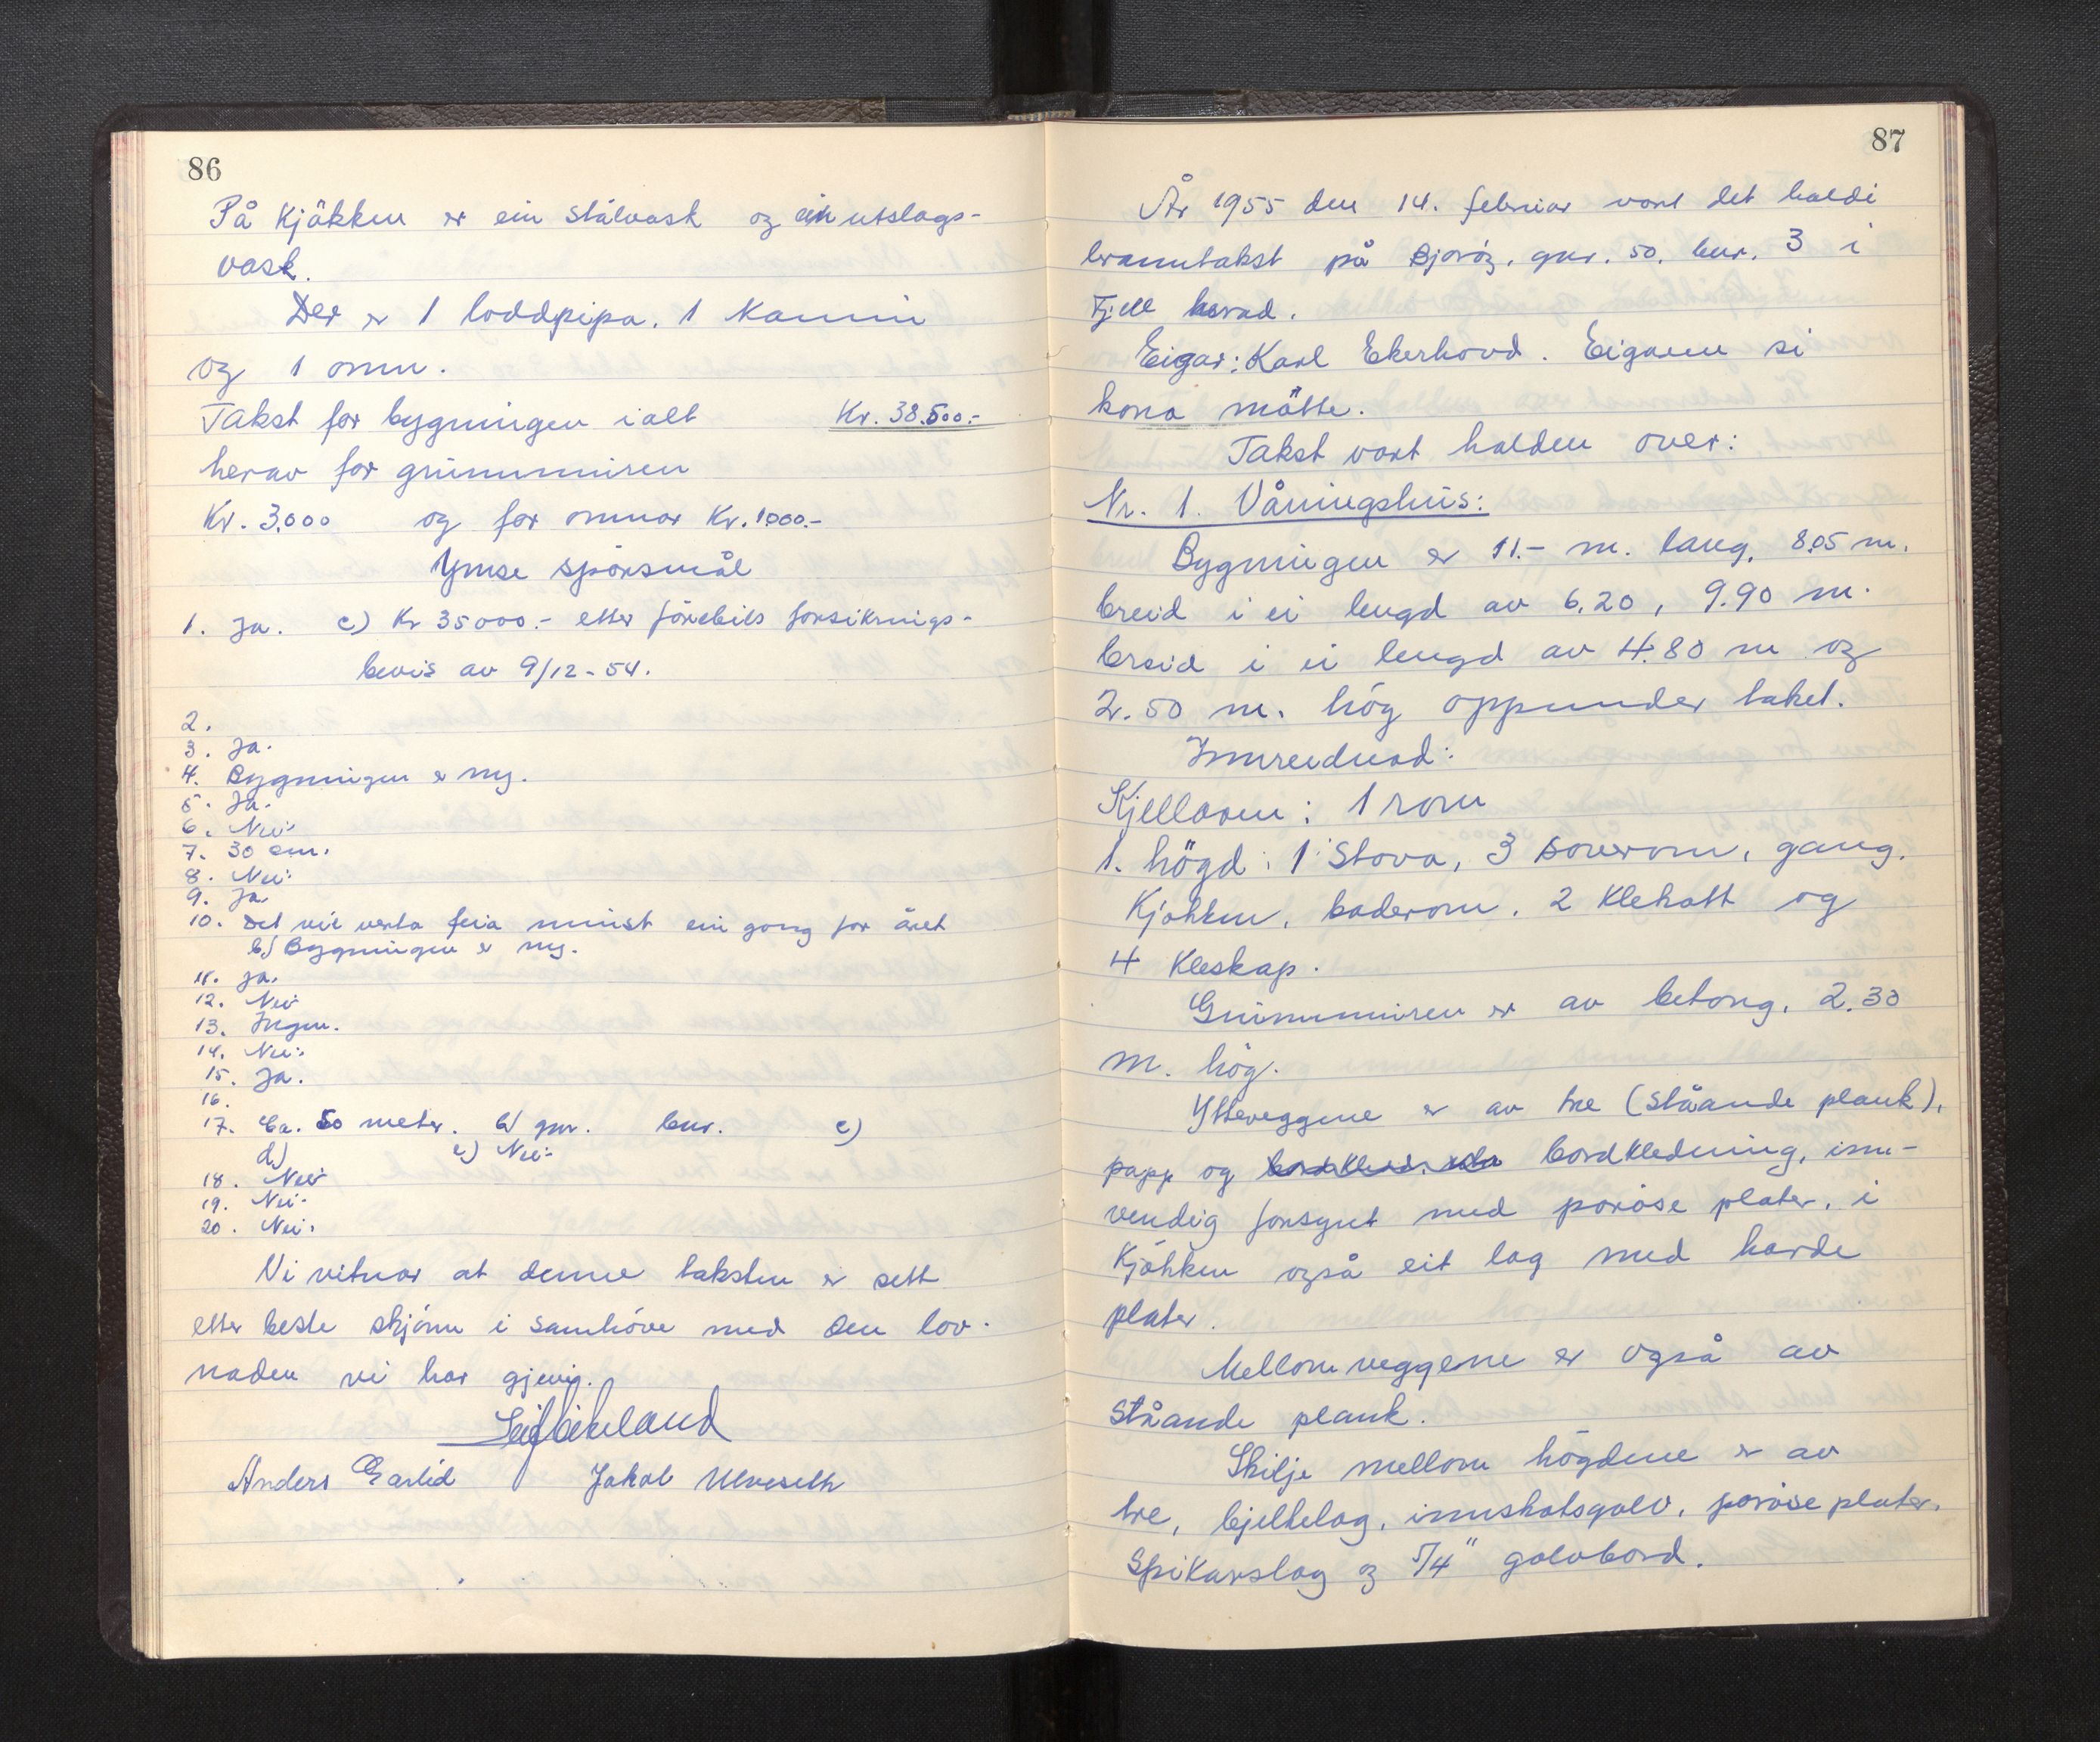 86
På kjökken er ein stålvask og ein utslags-
vask.
Der er 1 loddpipa. 1 Kamin
og 1 omn.
Takst for bygningen ialt Kr. 38.500.-
herav for grunnmuren
Kr. 3.000 og for omnar Kr. 1000.-
Ymse spörsmål
1. Ja. c) Kr 35000.- etter förebils forsikrings-
bevis av 9/12-54.
2.
3. Ja.
4. Bygningen er ny.
5. Ja.
6. Nei.
7. 30 cm.
8. Nei.
9. Ja
10. Det vil verta feia minst ein gong for året
b) Bygningen er ny.
11. Ja.
12. Nei
13. Ingen.
14. Nei.
15. Ja.
16.
17. Ca. 50 meter. b) gnr. bnr. c)
d) e) Nei.
18. Nei
19. Nei.
20. Nei.
Vi vitnar at denne taksten er sett
etter beste skjönn i samhöve med den lov-
naden vi har gjevig.
Leif Eikeland
Anders Earlid Jakob Ulveseth
87
År 1955 den 14. februar vart det haldi
branntakst på Bjoröy. gnr. 50. bnr. 3 i
Fjell herad.
Eigar: Karl Ekerhovd. Eigaren si
kona mötte.
Takst vart halden over:
Nr. 1. Våningshus:
Bygningen er 11.- m. lang. 8.05 m.
breid i ei lengd av 6.20, 9.90 m.
breid i ei lengd av 4.80 m og
2.50 m. hög oppunder taket.
Innreidnad:
Kjellaren: 1 rom
1. högd: 1 Stova, 3 soverom, gang.
Kjökken, baderom. 2 Klekott og
4 Kleskap.
Grunnmuren er av betong. 2.30
m. hög.
Ytteveggene er av tre (ståande plank),
papp og bordkledning, inn-
vendig forsynt med poröse plater. i
Kjökken også eit lag med harde
plater.
Mellomveggene er også av
ståande plank.
Skilje mellom högdene er av
tre, bjelkelag, innskotsgolv, poröse plater.
Spikarslag og 5/4" golvbord.